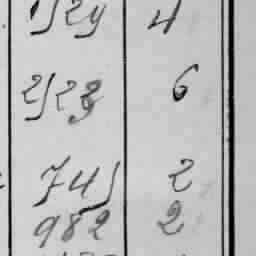 1524 4
2523 6
745 2
982 2